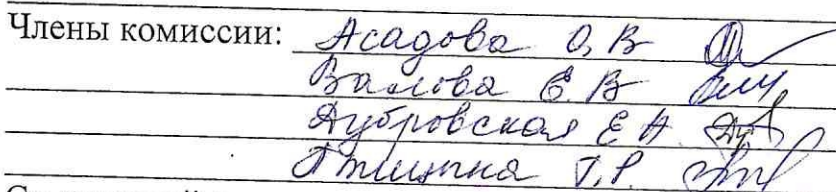 Члены комиссии: Асадова О.В
Валова Е.В
Дубровская Е А
Т.Р.